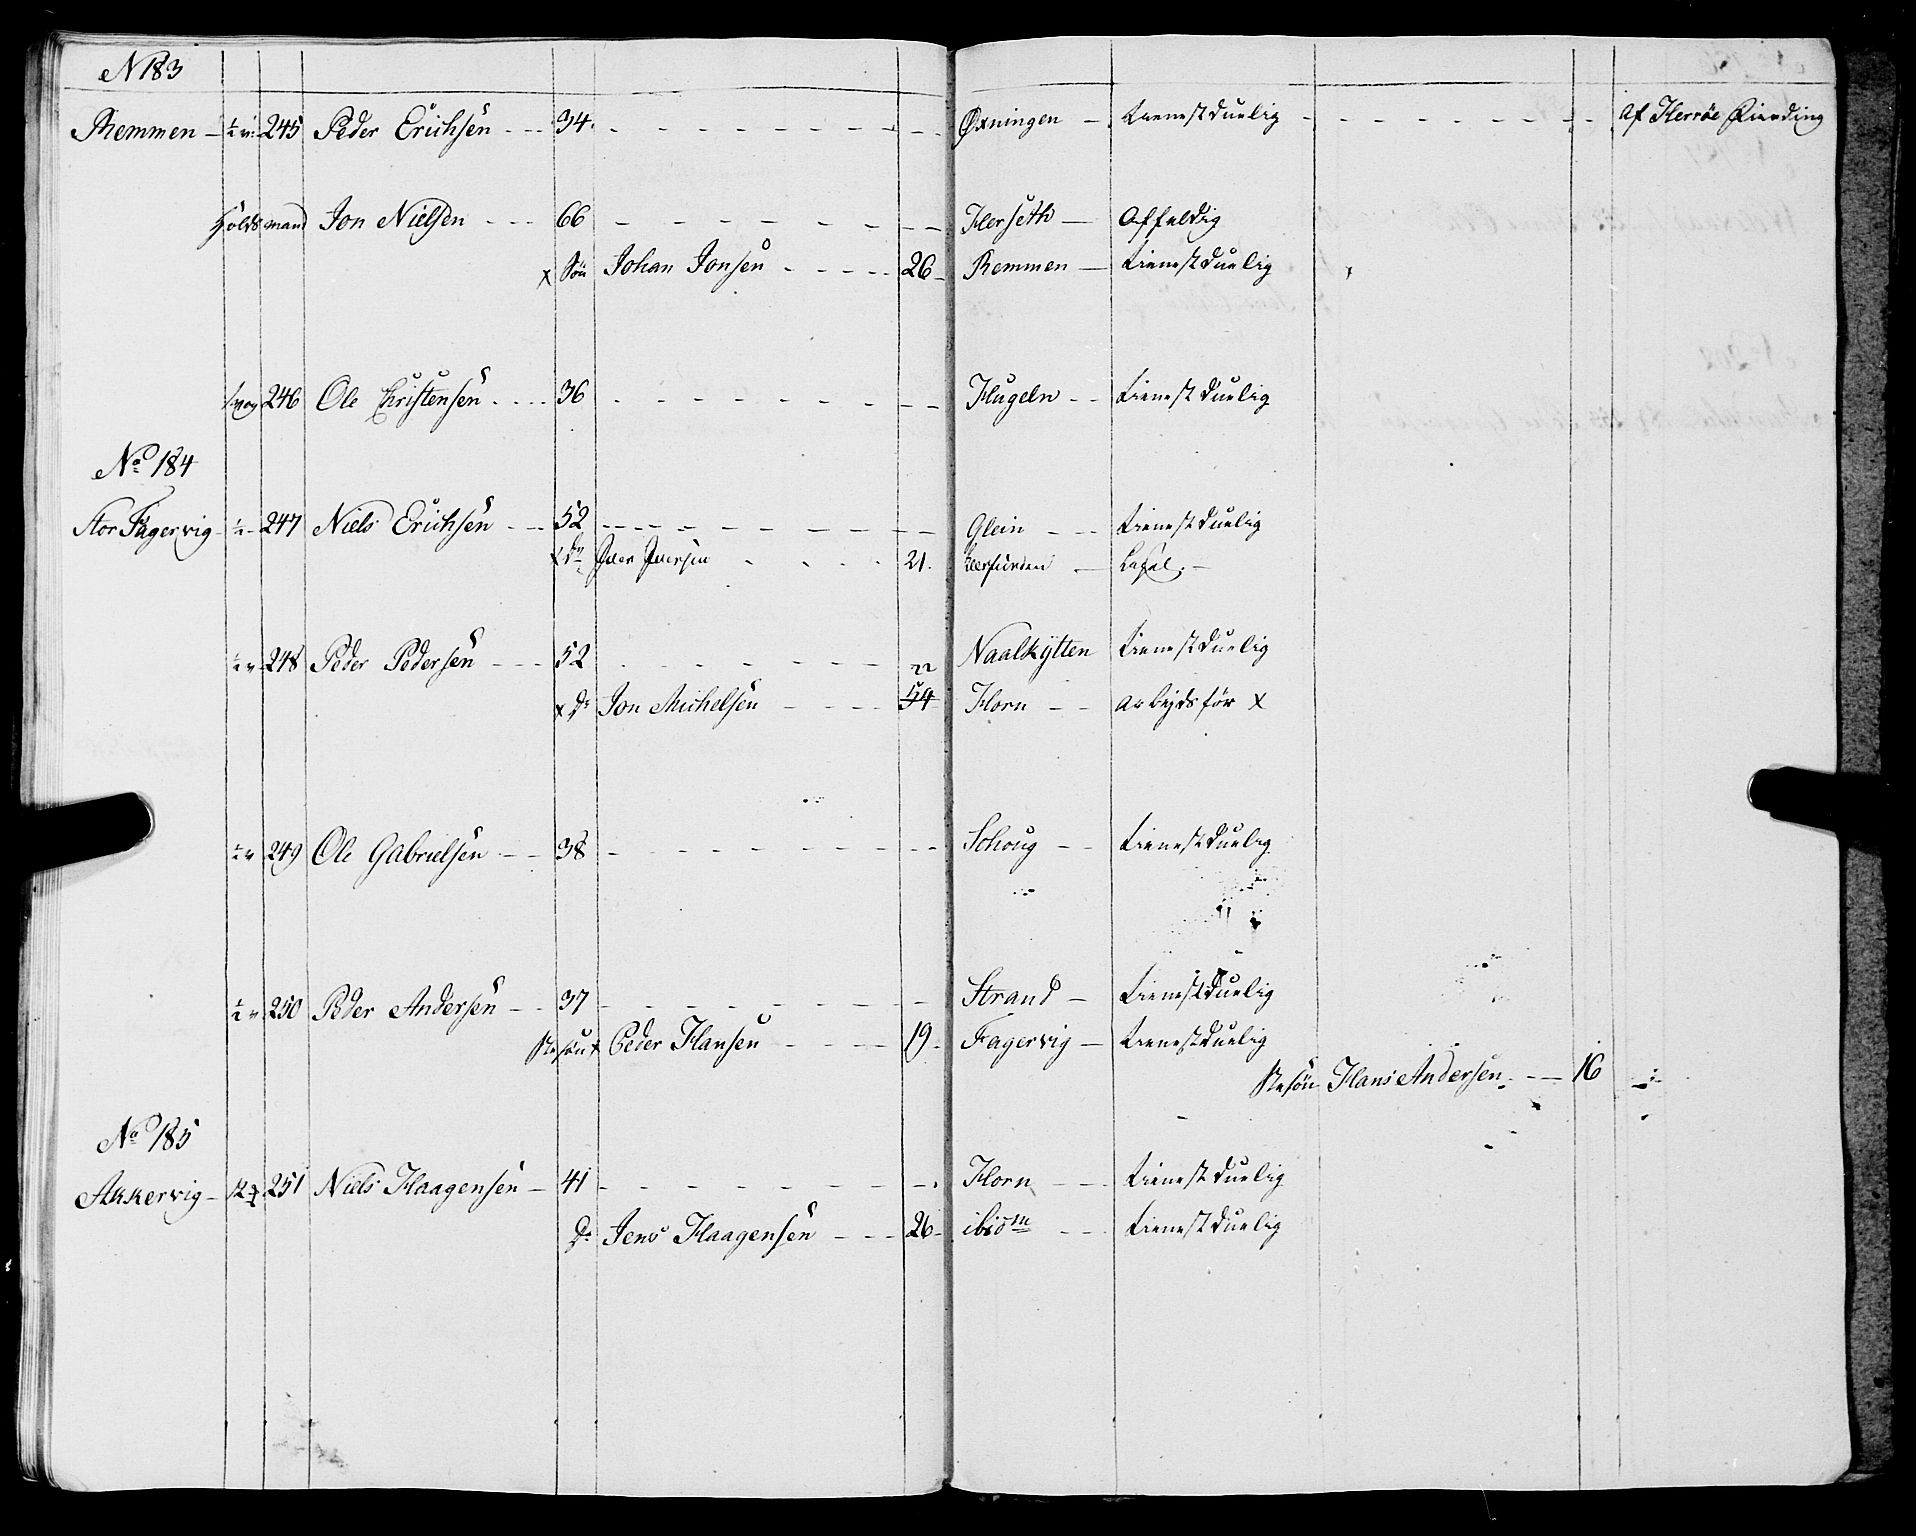 N 183
Remmen - ½ v: 245 Peder Erichsen - - - 34. - - - Øxningen - tienestduelig - - - Af Herrøe Fierding
Holdsmand Jon Nielsen - - - 66 - - - Herseth - Affeldig
x Søn Johan Jonsen - - - 26 - Remmen - tienestduelig
246 Ole Christensen - - - 36 - - - Flugeln - - tienestduelig
No 184
Stor Fagervig - ½ - 247 Niels Erichsen - - - 52 - - - Glein - - tienestduelig
x Do Iver Iversen - - - 21. -
½ v 248 Peder Pedersen - - - 52 - - - Naalkytten tienestduelig
22
x Do Jon Michelsen - - - 54 Horn - - arbejdsfør x
½ v 249 Ole Gabrielsen - - - 38 - - - Schoug - - tienestduelig
½ v 250 Peder Andersen - - 37 - - - Strand - tienestduelig
Stesøn x Peder Hansen - - - 19 - Fagervig - tienestduelig
Stesøn Hans Andersen - - - 16
No 185
Akkervig - 251 Niels Haagensen - 41 - - - Horn - - tienestduelig
Do Jens Haagensen - - - 26 - ibidm - - tienestduelig